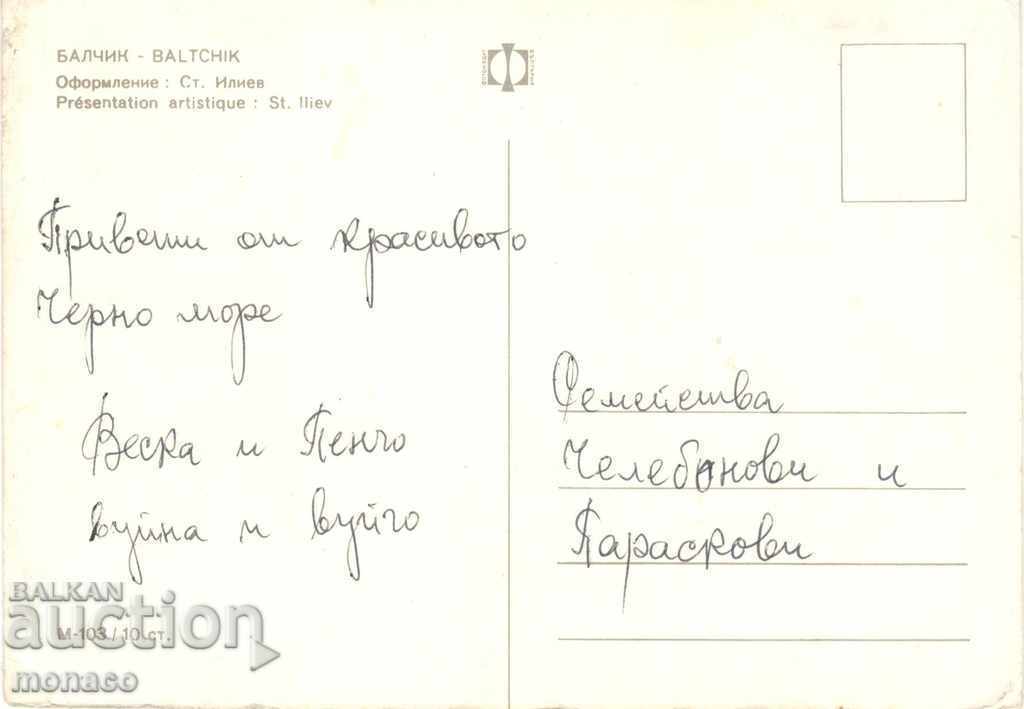 БАЛЧИК - BALTCHIK
Оформление : Ст. Илиев
Présentation artistique : St. Iliev
Привети от красивото
Черно море
Веска и Пенчо
вуйна и вуйчо
Семейства
Челебонови и
Параскови
М-103/10 ст.
BALKAN
auction
monaco